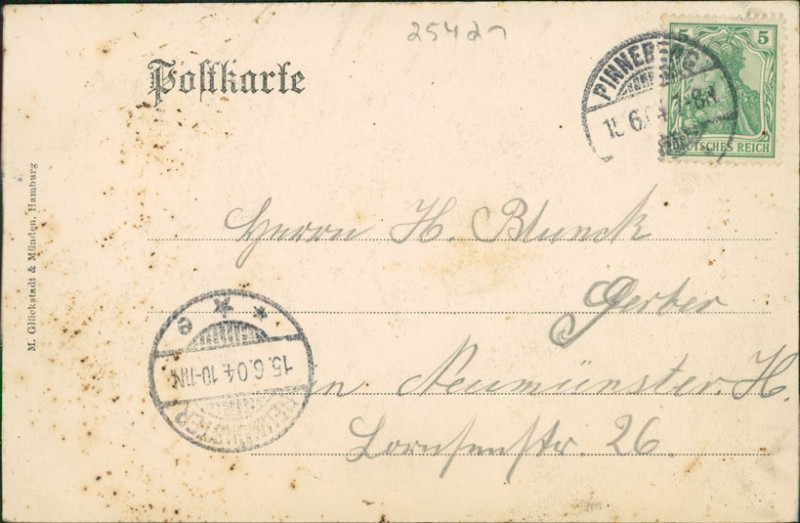 2542
Postkarte
5 5
DEUTSCHES REICH
PINNEBERG
15.6.04. 7-8N.
M. Glückstadt & Münden, Hamburg
Herrn H. Blunck
Gerber
in Neumünster. H.
Lornsenstr. 26.
NEUMÜNSTER
15.6.04. 10-11N.
* * e